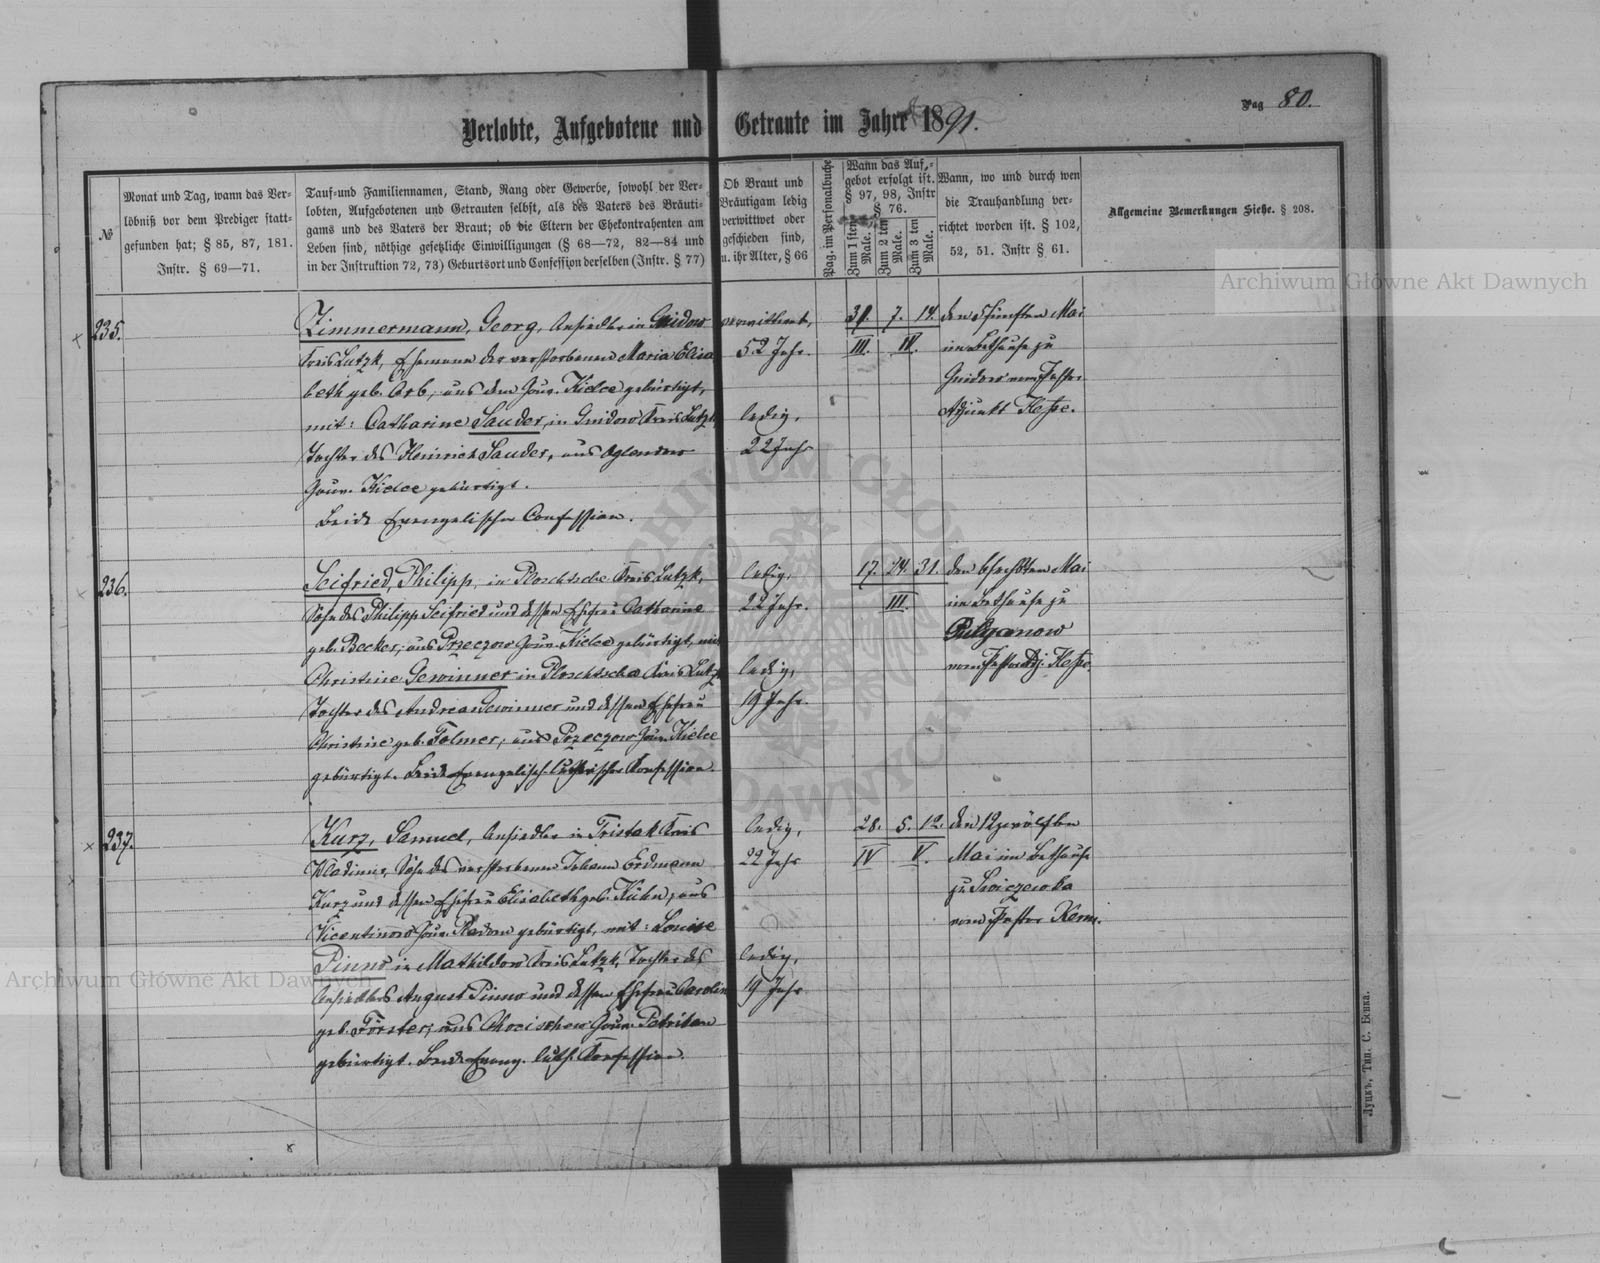 Pag 80.
Verlobte, Aufgebotene und Getraute im Jahre 1891.
№
Monat und Tag, wann das Ver-
löbniß vor dem Prediger statt-
gefunden hat; § 85, 87, 181.
Instr. § 69—71.
Tauf-und Familiennamen, Stand, Rang oder Gewerbe, sowohl der Ver-
lobten, Aufgebotenen und Getrauten selbst, als des Vaters des Bräuti-
gams und des Vaters der Braut; ob die Eltern der Ehekontrahenten am
Leben sind, nöthige gesetzliche Einwilligungen (§ 68—72, 82—84 und
in der Instruktion 72, 73) Geburtsort und Confession derselben (Instr. § 77)
Ob Braut und
Bräutigam ledig
verwittwet oder
geschieden sind,
u. ihr Alter, § 66
Pag. im Personalbuche
Wann das Auf-
gebot erfolgt ist.
§ 97, 98, Instr
§ 76.
Zum 1 sten
Male.
Zum 2 ten
Male.
Zum 3 ten
Male.
Wann, wo und durch wen
die Trauhandlung ver-
richtet worden ist. § 102,
52, 51. Instr § 61.
Allgemeine Bemerkungen Siehe. § 208.
235.
Zimmermann, Georg, Ansiedler in Gnidow
Kreis Lutzk, Ehemann der verstorbenen Maria Elisa
beth geb. Arb, aus dem Gouv. Kielce gebürtigt,
mit: Catharine Sauder, in Gnidow Kreis Lutzk,
Tochter des Heinrich Sauder, aus
Gouv. Kielce gebürtigt.
Beide Evangelischer Confession.
verwittwet,
52 Jahr.
ledig,
22 Jahr
31. 7. 14.
III. IV.
den 5 fünften Mai
im Bethause zu
Gnidow vom Pastor
Adjunkt Hesse.
236.
Seifried, Philipp, in Ploschtscha Kreis Lutzk,
Sohn des Philipp Seifried und dessen Ehefrau Catharine
geb. Becker, aus Przeczow Gouv. Kielce gebürtigt, mit
Christine Gewinner in Ploschtscha Kreis Lutzk
Tochter des Andreas Gewinner und dessen Ehefrau
Christine geb. Folmer, aus Przeczow Gouv. Kielce
gebürtigt. Beide Evangelisch-Lutherischer Konfession.
ledig,
22 Jahr.
ledig,
19 Jahr.
17. 24. 31.
III.
den 6 sechsten Mai
im Bethause zu
Pulganow
vom Pastor Adj. Hesse.
237.
Kurz, Samuel, Ansiedler in Tristak Kreis
Wladimir, Sohn des verstorbenen Johann Erdmann
Kurz und dessen Ehefrau Elisabeth geb. Kühn, aus
Vicentinow Gouv. Radom gebürtigt, mit: Louise
Pinno in Mathildow Kreis Lutzk, Tochter des
Ansiedlers August Pinno und dessen Ehefrau Carolin
geb. Förster, aus Gouv. Petrikau
gebürtigt. Beide Evang. Luth. Konfession.
ledig,
22 Jahr
ledig,
19 Jahr
28. 5. 12.
IV V.
den 12 zwölften
Mai im Bethause
zu
vom Pastor Kerm.
Луцкъ, Тип. С. Бенка.
Archiwum Główne Akt Dawnych
Archiwum Główne Akt Dawnych
ARCHIWUM GŁÓWNE AKT DAWNYCH